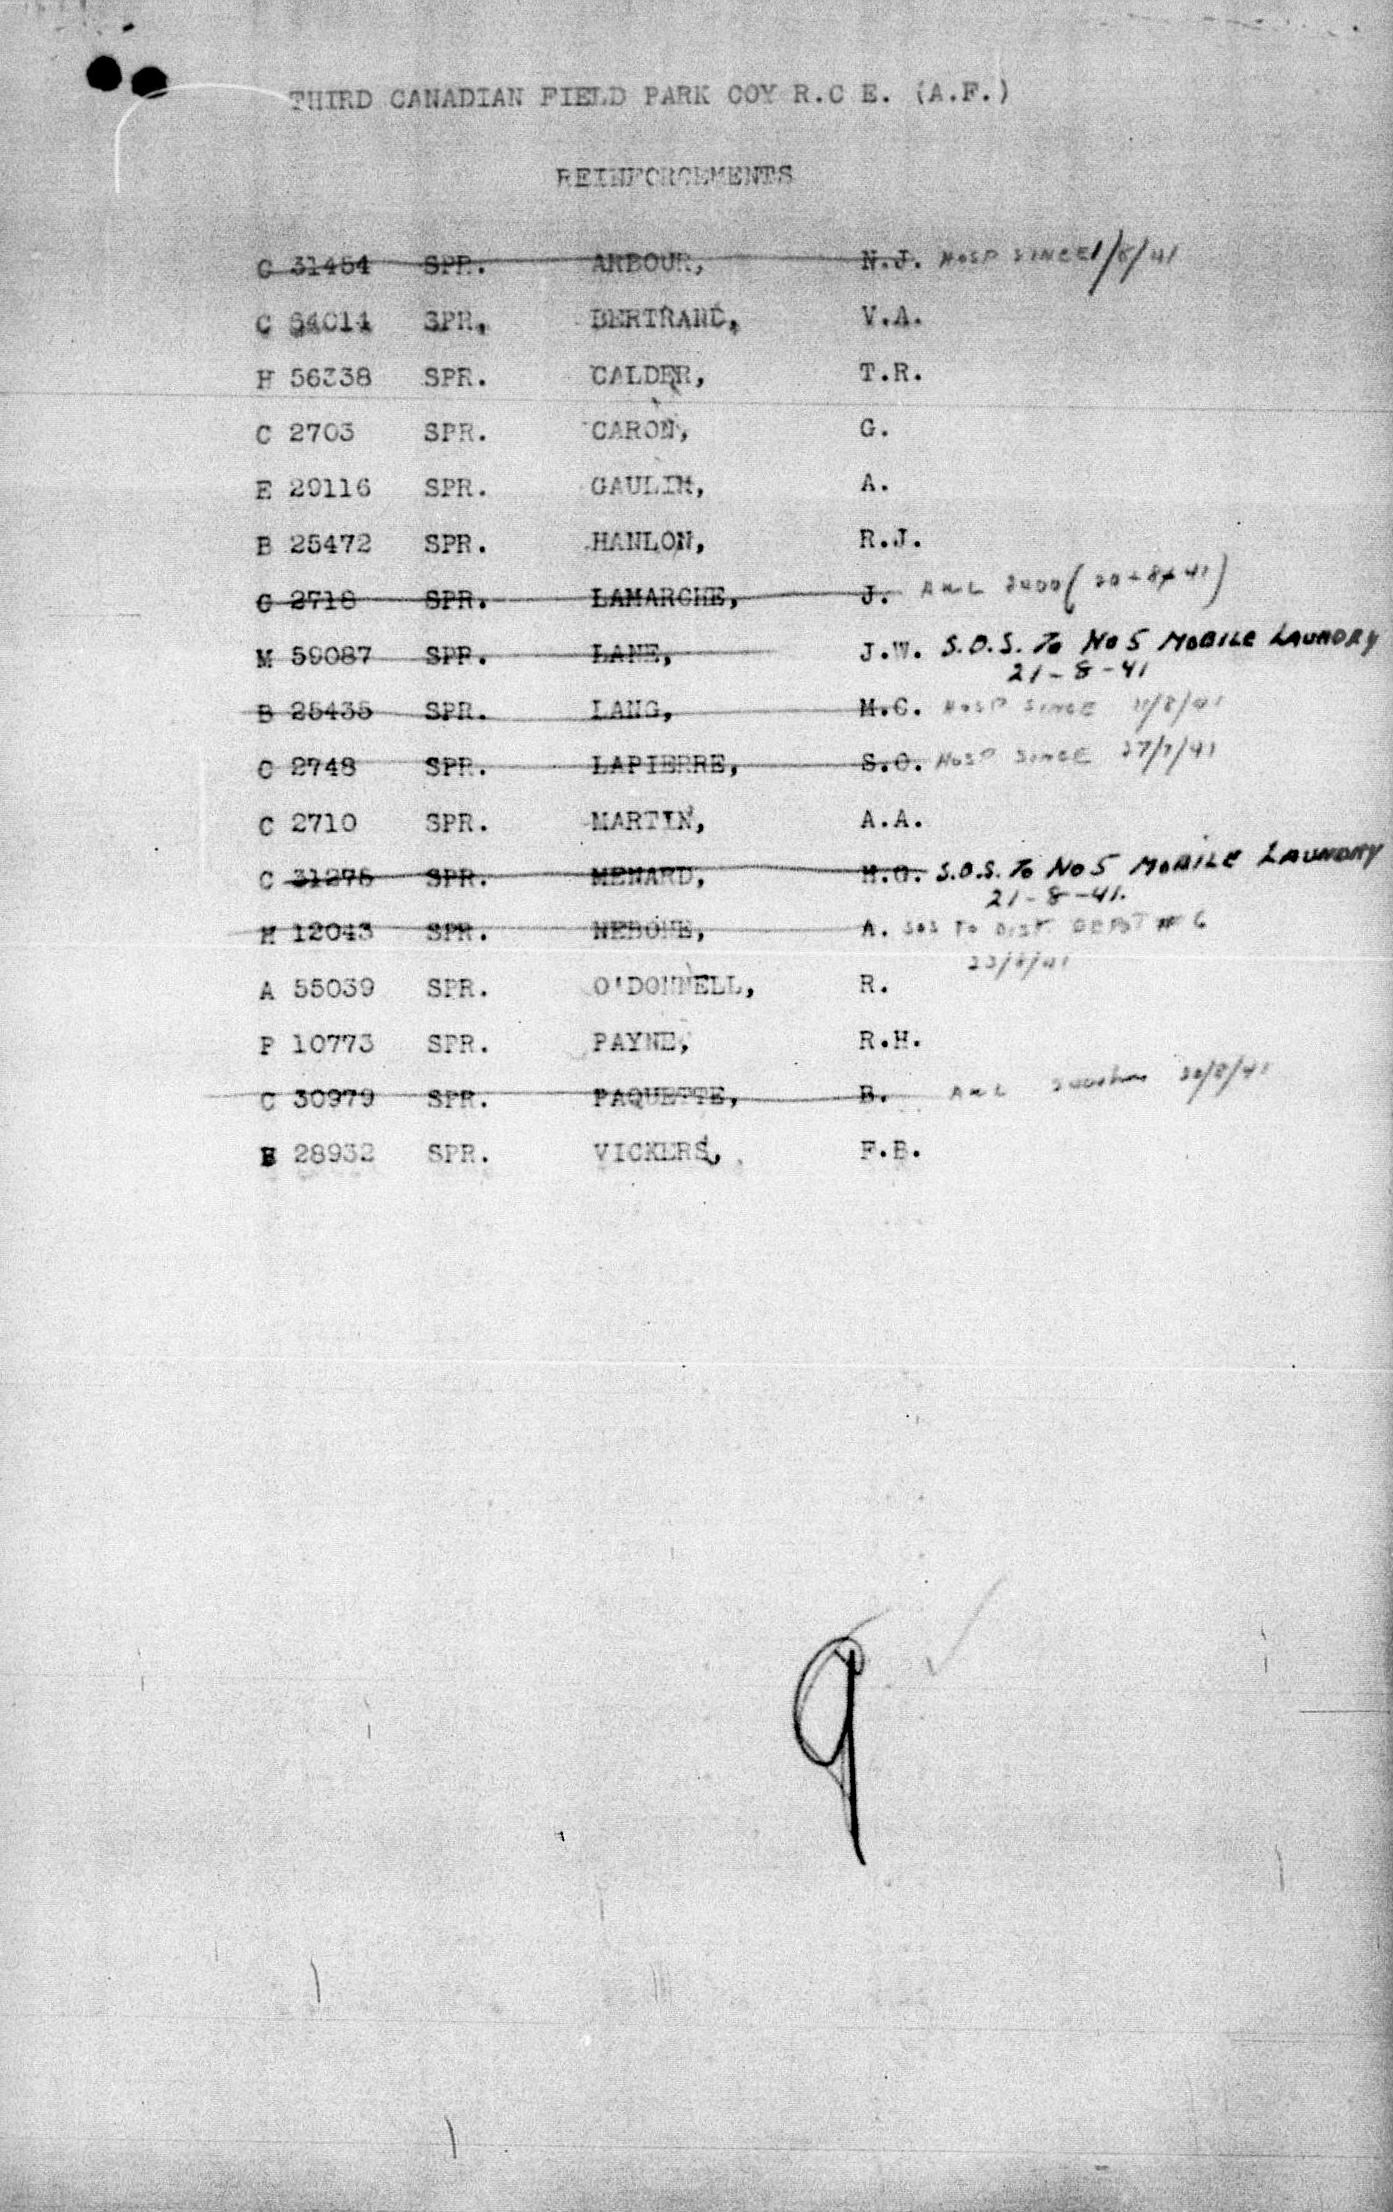 THIRD CANADIAN FIELD PARK COY R.C E. (A.F.)
REINFORCEMENTS
C 31454 SPR. ARBOUR, N.J. HOSP SINCE 1/8/41
C 54014 SPR. BERTRAND, V.A.
H 56338 SPR. CALDER, T.R.
C 2703 SPR. CARON, G.
E 29116 SPR. GAULIN, A.
B 25472 SPR. HANLON, R.J.
C 2718 SPR. LAMARCHE, J. AWL 2400 (20-8-41)
M 59087 SPR. LANE, J.W. S.O.S. To No 5 MOBILE LAUNDRY
21-8-41
B 25435 SPR. LANG, M.C. HOSP SINCE 11/8/41
C 2748 SPR. LAPIERRE, S.O. HOSP SINCE 27/7/41
C 2710 SPR. MARTIN, A.A.
C 31276 SPR. MENARD, H.G. S.O.S. To No 5 MOBILE LAUNDRY
21-8-41.
H 12043 SPR. A. SOS TO DIST DEPOT # 6
23/8/41
A 55039 SPR. O'DONNELL, R.
F 10773 SPR. PAYNE, R.H.
C 30979 SPR. PAQUETTE, B. AWL 20/8/41
E 28932 SPR. VICKERS, F.B.
9